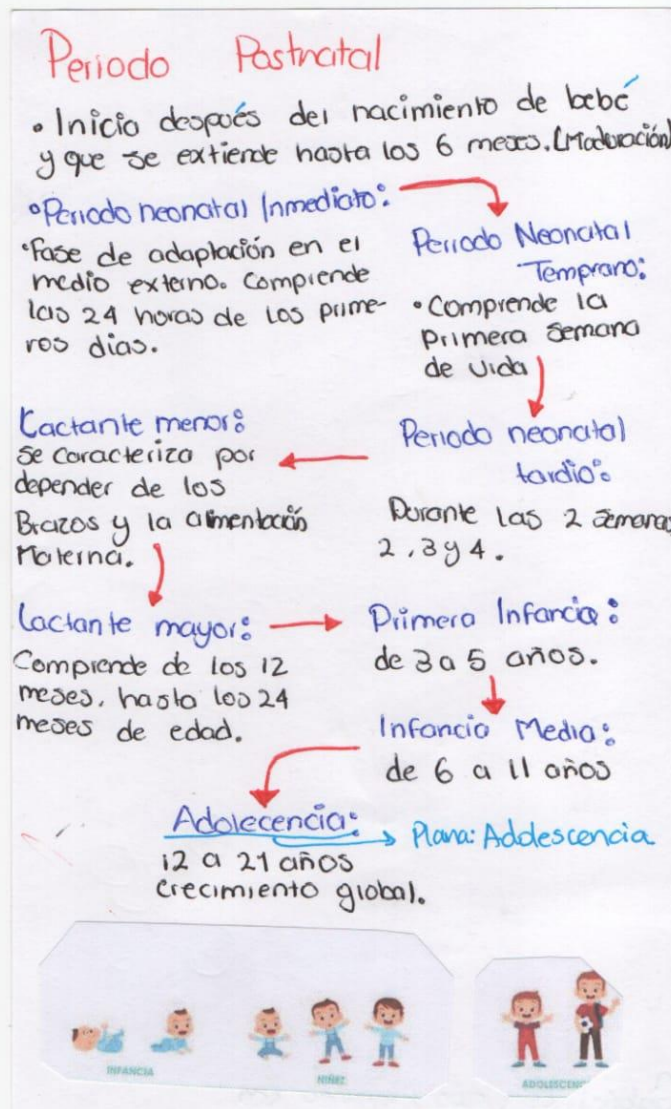 Periodo Postnatal
• Inicia después del nacimiento de bebé
y que se extiende hasta los 6 meses. (Maduración)
• Periodo neonatal Inmediato:
• Fase de adaptación en el
medio externo. Comprende
las 24 horas de los prime-
ros dias.
Periodo Neonatal
Temprano:
• Comprende la
primera semana
de vida
Periodo neonatal
tardio:
Durante las 2 semanas
2, 3 y 4.
Lactante menor:
se caracteriza por
depender de los
Brazos y la alimentación
Materna.
Lactante mayor:
Comprende de los 12
meses, hasta los 24
meses de edad.
Primera Infancia:
de 3 a 5 años.
Infancia Media:
de 6 a 11 años
Adolecencia:
Plana: Adolescencia
12 a 21 años
crecimiento global.
INFANCIA
NIÑEZ
ADOLESCENC